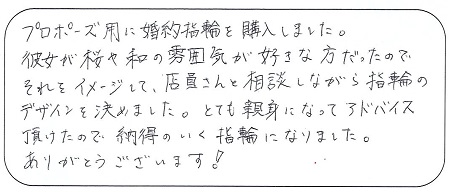 プロポーズ用に婚約指輪を購入しました。
彼女が桜や和の雰囲気が好きな方だったので
それをイメージして、店員さんと相談しながら指輪の
デザインを決めました。とても親身になってアドバイス
頂けたので納得のいく指輪になりました。
ありがとうございます!